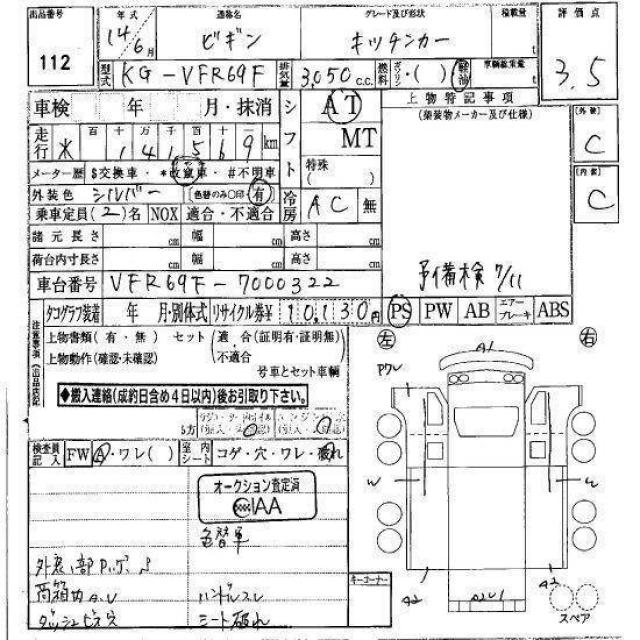 出品番号
112
年式
14年
6月
通称名
ビギン
グレード及び形状
キッチンカー
積載量
t
評価点
3.5
型式
KG-VFR69F
排気量
3,050 c.c.
燃料
ガソリン・( )
軽油
車輌総重量
t
車検 年 月・抹消
シフト
AT
MT
特殊
( )
上物特記事項
(架装物メーカー及び仕様)
[外装]
C
[内装]
C
走行
百 十 万 千 百 十
* 1 4 1 5 6 9 km
メーター歴 $交換車・*改竄車・#不明車
外装色 シルバー (色替のみ〇印 有)
冷房 AC 無
乗車定員(2)名 NOX 適合・不適合
諸元長さ cm 幅 cm 高さ cm
荷台内寸長さ cm 幅 cm 高さ cm
車台番号 VFR69F-7000322
予備検 7/11
タコグラフ装着 年 月・別体式 リサイクル券¥ 10,130円
PS PW AB エアーブレーキ ABS
注意事項
上物書類(有・無) セット(適合(証明有・証明無)
上物動作(確認・未確認) 不適合
号車とセット車輌
◆搬入連絡(成約日含め4日以内)後お引取り下さい。
左
右
A1
W
検査員記入 FW A・ワレ( ) 室内シート コゲ・穴・ワレ・破れ
オークション査定済
IAA
色替車
ハンドルスレ
シート破れ
キーコーナー
A2
A2
スペア